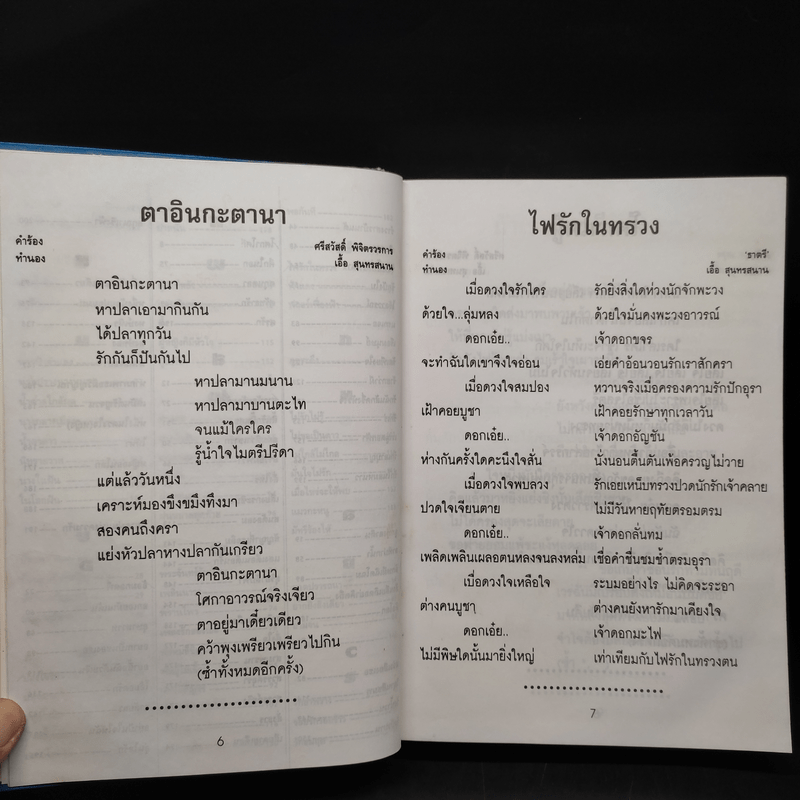 ตาอินกะตานา
คำร้อง ศรีสวัสดิ์ พิจิตรวรการ
ทำนอง เอื้อ สุนทรสนาน
ตาอินกะตานา
หาปลาเอามากินกัน
ได้ปลาทุกวัน
รักกันก็ปันกันไป
หาปลามานมนาน
หาปลามาบานตะไท
จนแม้ใครใคร
รู้น้ำใจไมตรีปรีดา
แต่แล้ววันหนึ่ง
เคราะห์มองขึงขมึงทึงมา
สองคนถึงครา
แย่งหัวปลาหางปลากันเกรียว
ตาอินกะตานา
โศกาอาวรณ์จริงเจียว
ตาอยู่มาเดี๋ยวเดียว
คว้าพุงเพรียวเพรียวไปกิน
(ซ้ำทั้งหมดอีกครั้ง)
6
ไฟรักในทรวง
คำร้อง 'ธาตรี'
ทำนอง เอื้อ สุนทรสนาน
เมื่อดวงใจรักใคร รักยิ่งสิ่งใดห่วงนักจักพะวง
ด้วยใจ...ลุ่มหลง ด้วยใจมั่นคงพะวงอาวรณ์
ดอกเอ๋ย.. เจ้าดอกขจร
จะทำฉันใดเขาจึงใจอ่อน เอ่ยคำอ้อนวอนรักเราสักครา
เมื่อดวงใจสมปอง หวานจริงเมื่อครองความรักปักอุรา
เฝ้าคอยบูชา เฝ้าคอยรักษาทุกเวลาวัน
ดอกเอ๋ย.. เจ้าดอกอัญชัน
ห่างกันครั้งใดคะนึงใจสั่น นั่งนอนตื้นตันเพ้อครวญไม่วาย
เมื่อดวงใจพบลวง รักเอยเหน็บทรวงปวดนักรักเจ้าคลาย
ปวดใจเจียนตาย ไม่มีวันหายฤทัยตรอมตรม
ดอกเอ๋ย.. เจ้าดอกลั่นทม
เพลิดเพลินเผลอตนหลงจนลงหล่ม เชื่อคำชื่นชมช้ำตรมอุรา
เบื่อดวงใจเหลือใจ ระบมอย่างไร ไม่คิดจะระอา
ต่างคนบูชา ต่างคนยังหารักมาเคียงใจ
ดอกเอ๋ย.. เจ้าดอกมะไฟ
ไม่มีพิษใดนั้นมายิ่งใหญ่ เท่าเทียมกับไฟรักในทรวงตน
7